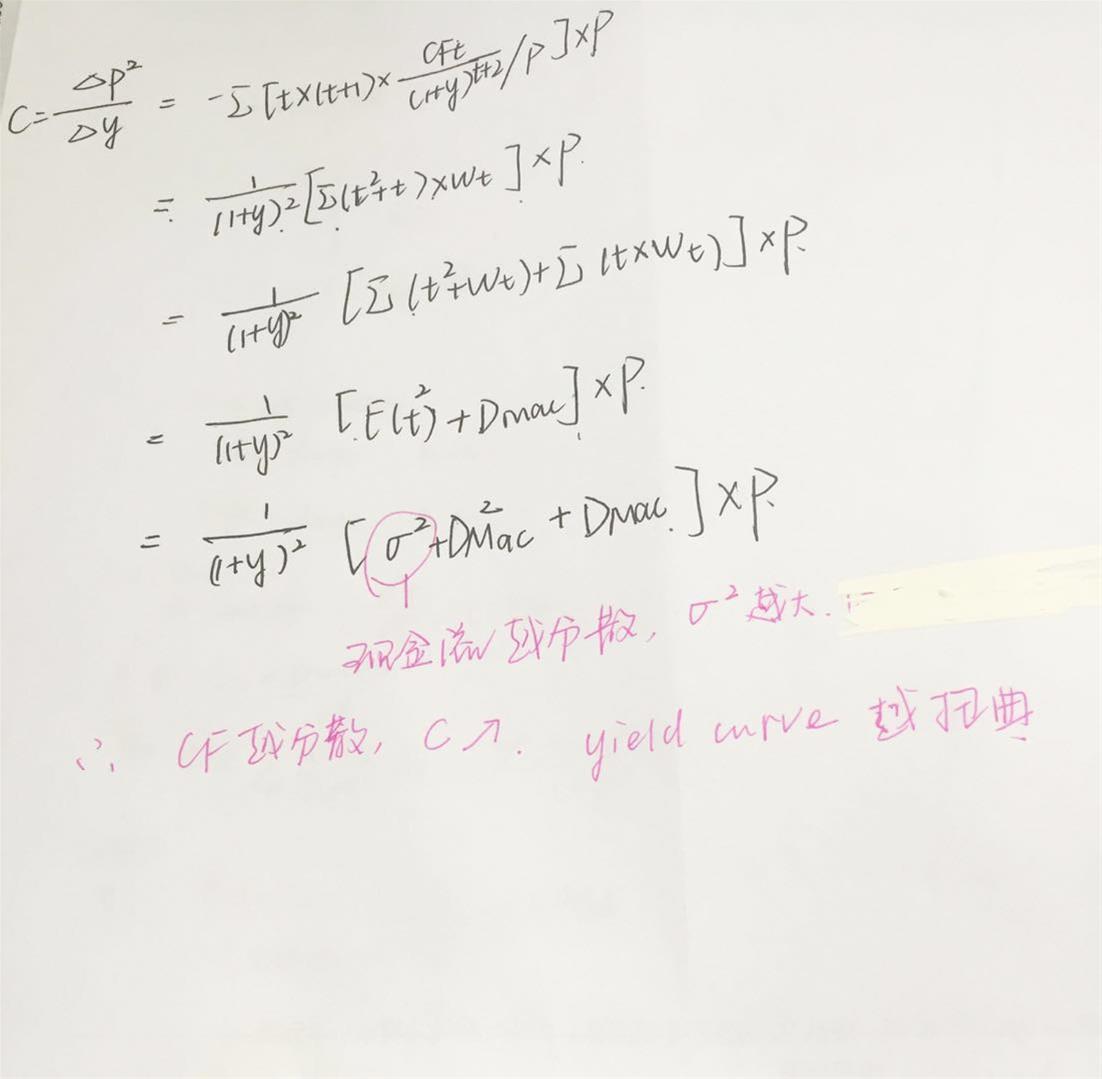 C = ΔP² / Δy = -Σ[t×(t+1)× CFt / (1+y)^(t+2) / P]×P
= 1/(1+y)² [Σ(t²+t)×Wt]×P.
= 1/(1+y)² [Σ(t²+Wt)+Σ(t×Wt)]×P.
= 1/(1+y)² [E(t²)+Dmac]×P.
= 1/(1+y)² [σ²+DMac²+DMac.]×P.
现金流越分散, σ²越大.
∴ CF越分散, C↗. yield curve 越扭曲